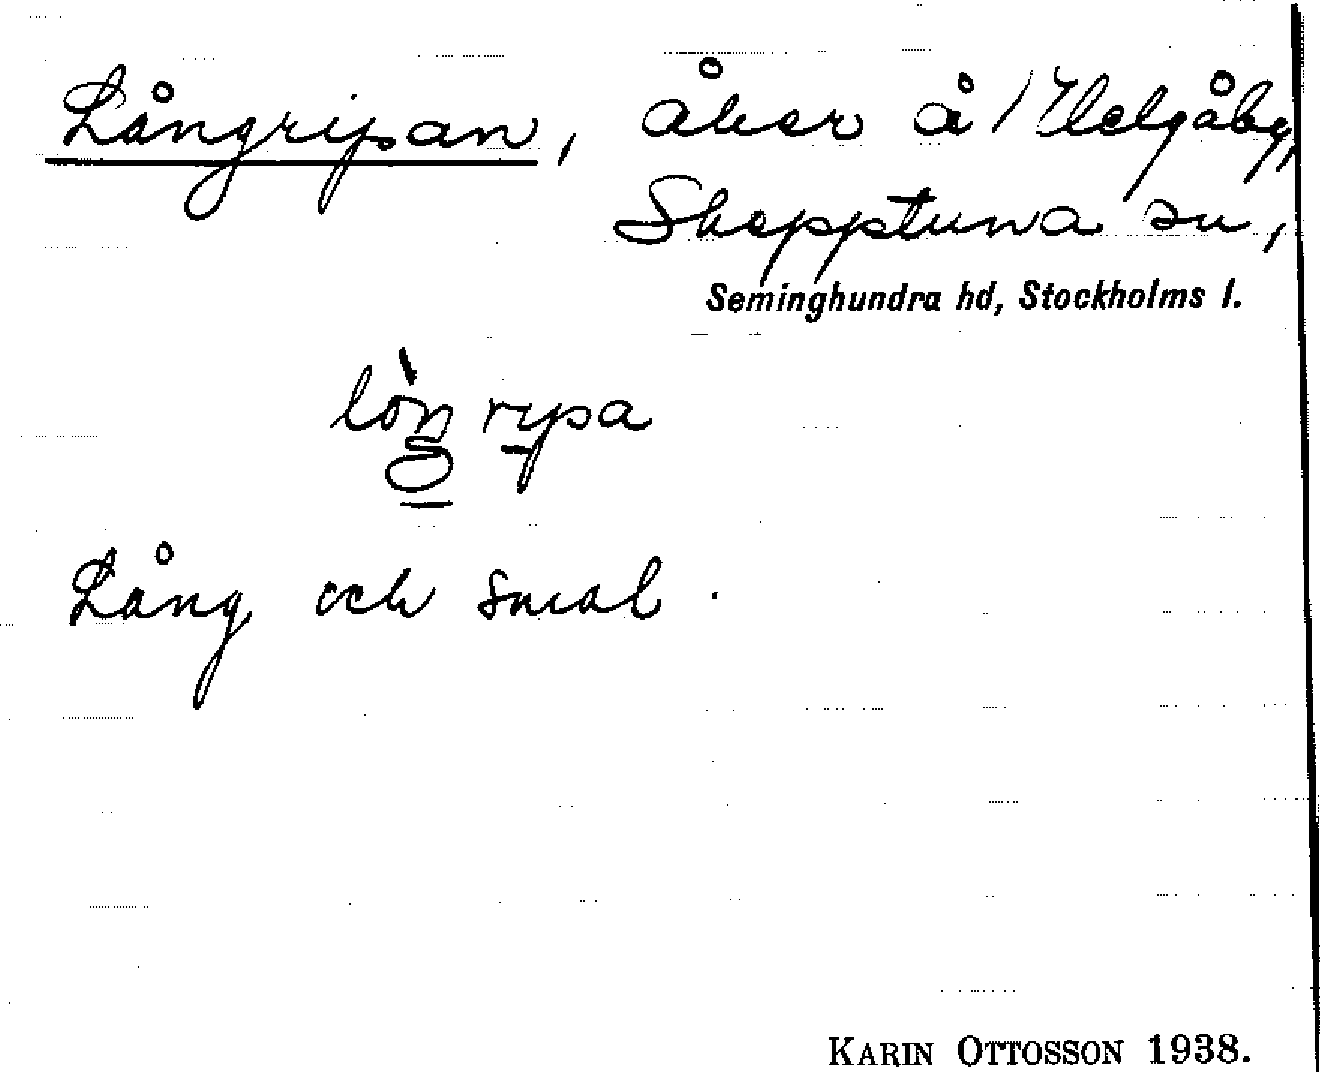 Långripan, åker å Helgåby,
Skepptuna sn,
Seminghundra hd, Stockholms l.
Lång och smal.
KARIN OTTOSSON 1938.